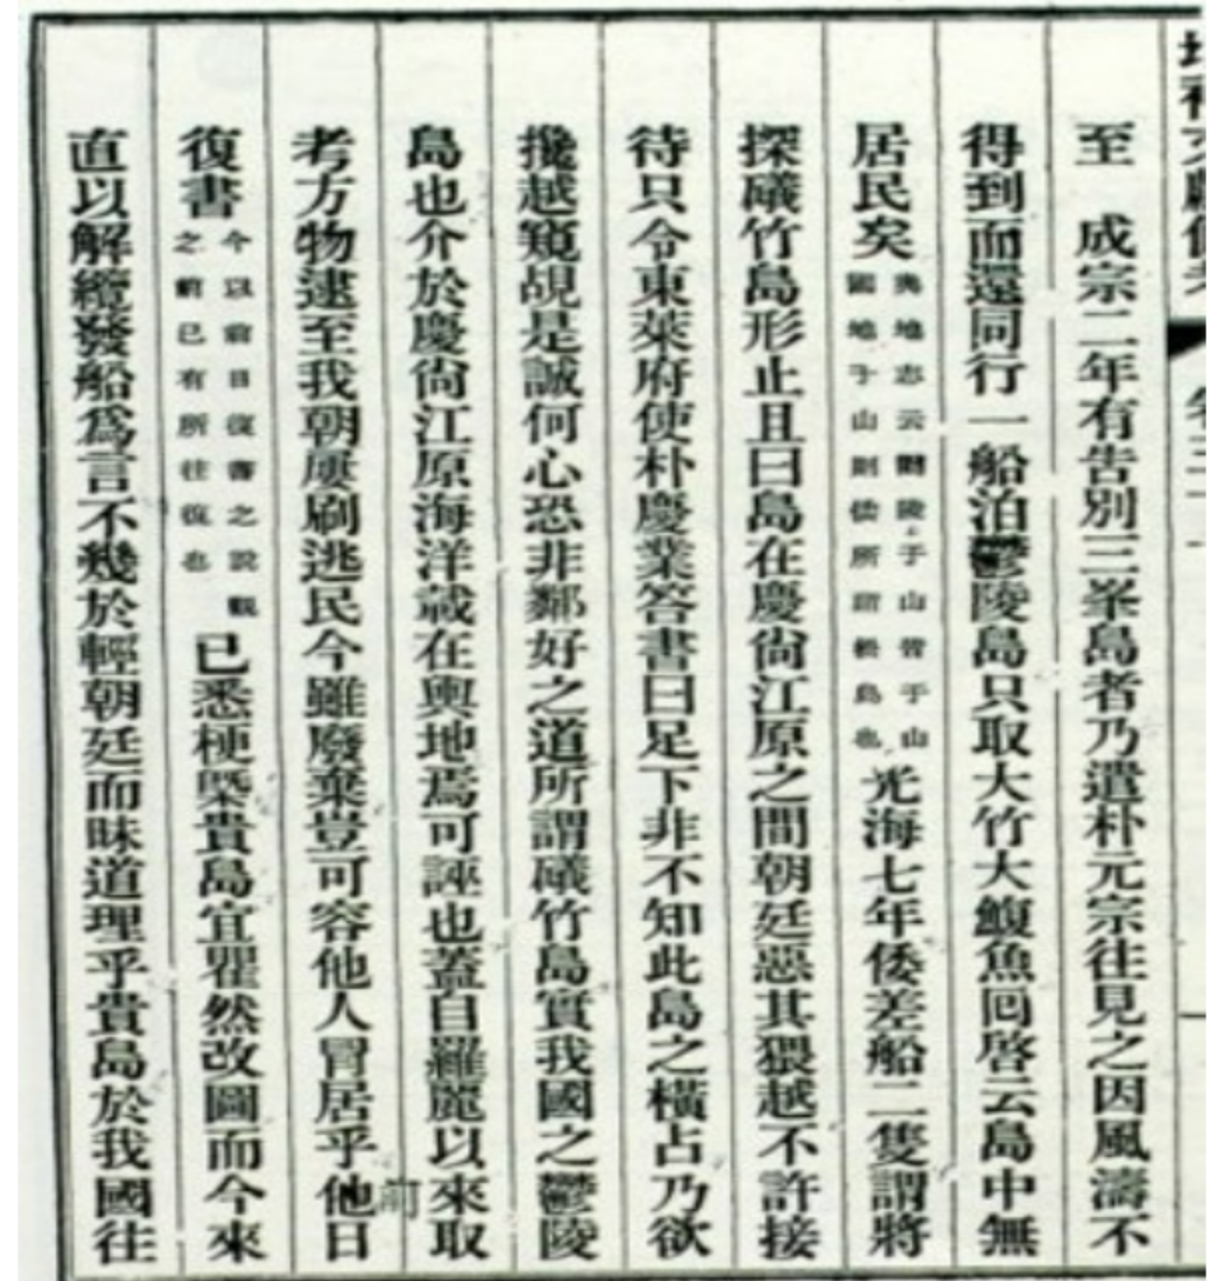 增補文獻備考 卷三十一
至 成宗二年有告別三峯島者乃遣朴元宗往見之因風濤不
得到而還同行一船泊鬱陵島只取大竹大鰒魚回啓云島中無
居民矣輿地志云鬱陵于山皆于山國地于山則倭所謂松島也光海七年倭差船二隻謂將
探礒竹島形止且曰島在慶尙江原之間朝廷惡其猥越不許接
待只令東萊府使朴慶業答書曰足下非不知此島之橫占乃欲
攙越窺覘是誠何心恐非鄰好之道所謂礒竹島實我國之鬱陵
島也介於慶尙江原海洋載在輿地焉可誣也蓋自羅麗以來取
考方物逮至我朝屢刷逃民今雖廢棄豈可容他人冒居乎前他日
復書今以前日復書之說觀之前已有所往復也已悉梗槩貴島宜瞿然改圖而今來
直以解纜發船爲言不幾於輕朝廷而昧道理乎貴島於我國往